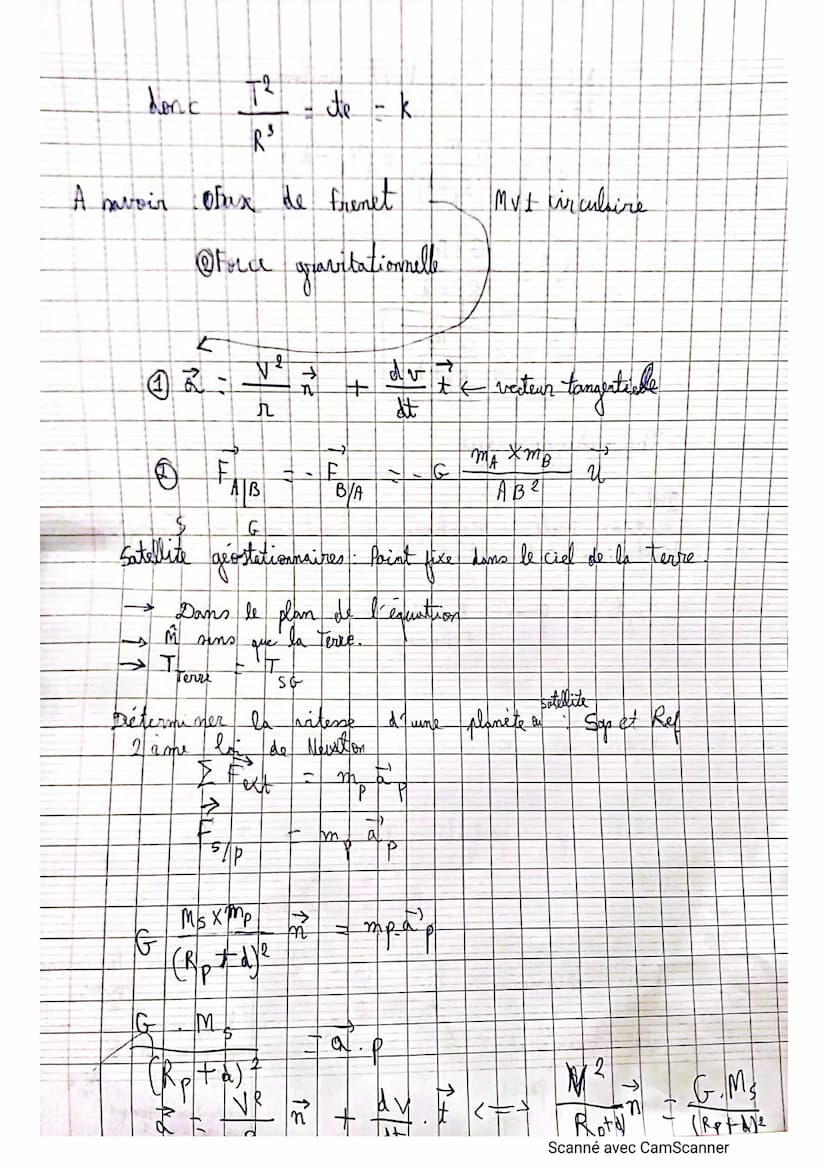 donc T²/R³ = cte = k
A savoir : ① Frix de frenet Mvt circulaire
② Force gravitationnelle
① a⃗ = V²/r n⃗ + dv/dt t⃗ ← vecteur tangentielle
② F⃗ A/B = - F⃗ B/A = - G mA × mB / AB² u⃗
S G
Satellite géostationnaires : Point fixe dans le ciel de la Terre.
→ Dans le plan de l'équation
→ m̂ sens que la Terre.
→ T Terre = T SG
satellite
Déterminer la vitesse d'une planète ou : Sys et Ref
2 ième loi de Newton
Σ F⃗ext = mp a⃗p
F⃗ s/p = mp a⃗p
G Ms × mp / (Rp + d)² n⃗ = mp.a⃗p
G . Ms / (Rp + d)² = a⃗.p
a⃗ = V² n⃗ + dv/dt . t⃗ <=> V²/Rp+d n⃗ = G.Ms/(Rp+d)²
Scanné avec CamScanner